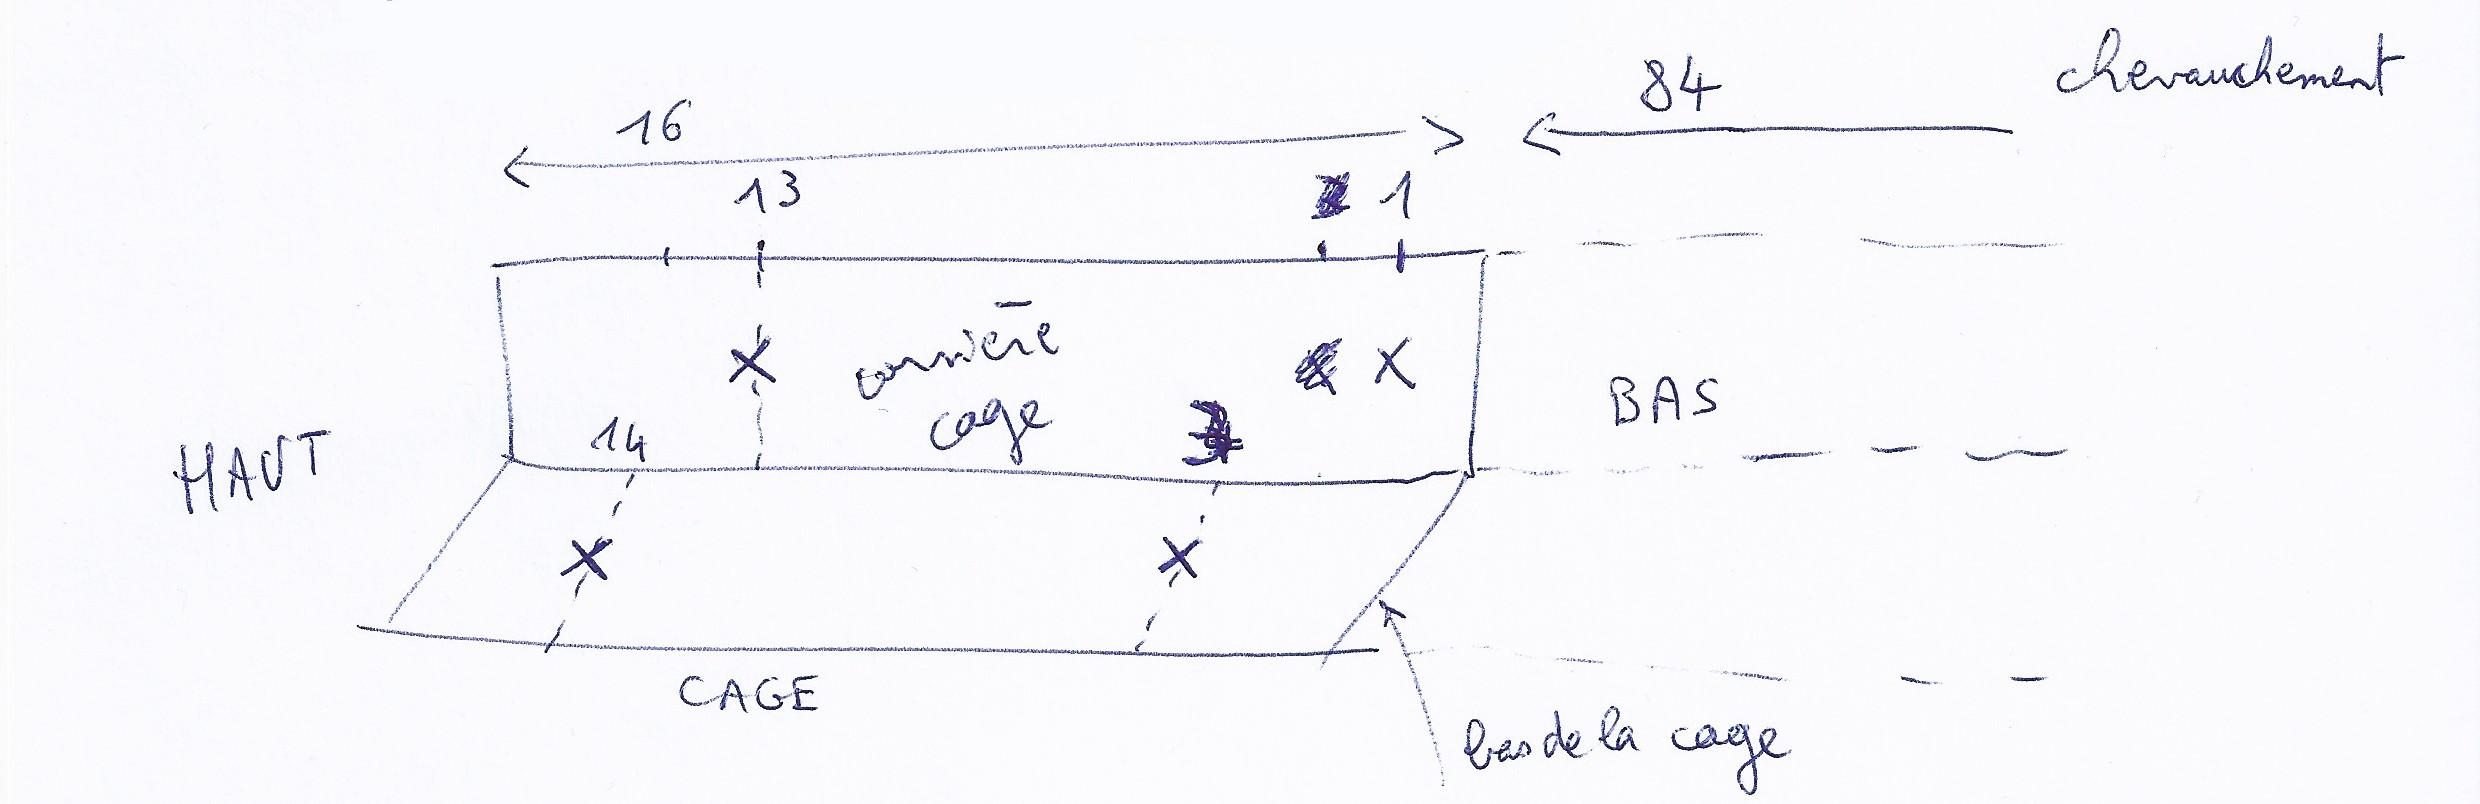 chevauchement
84
16
13
1
arrière
cage
BAS
HAUT
14
3
CAGE
bas de la cage